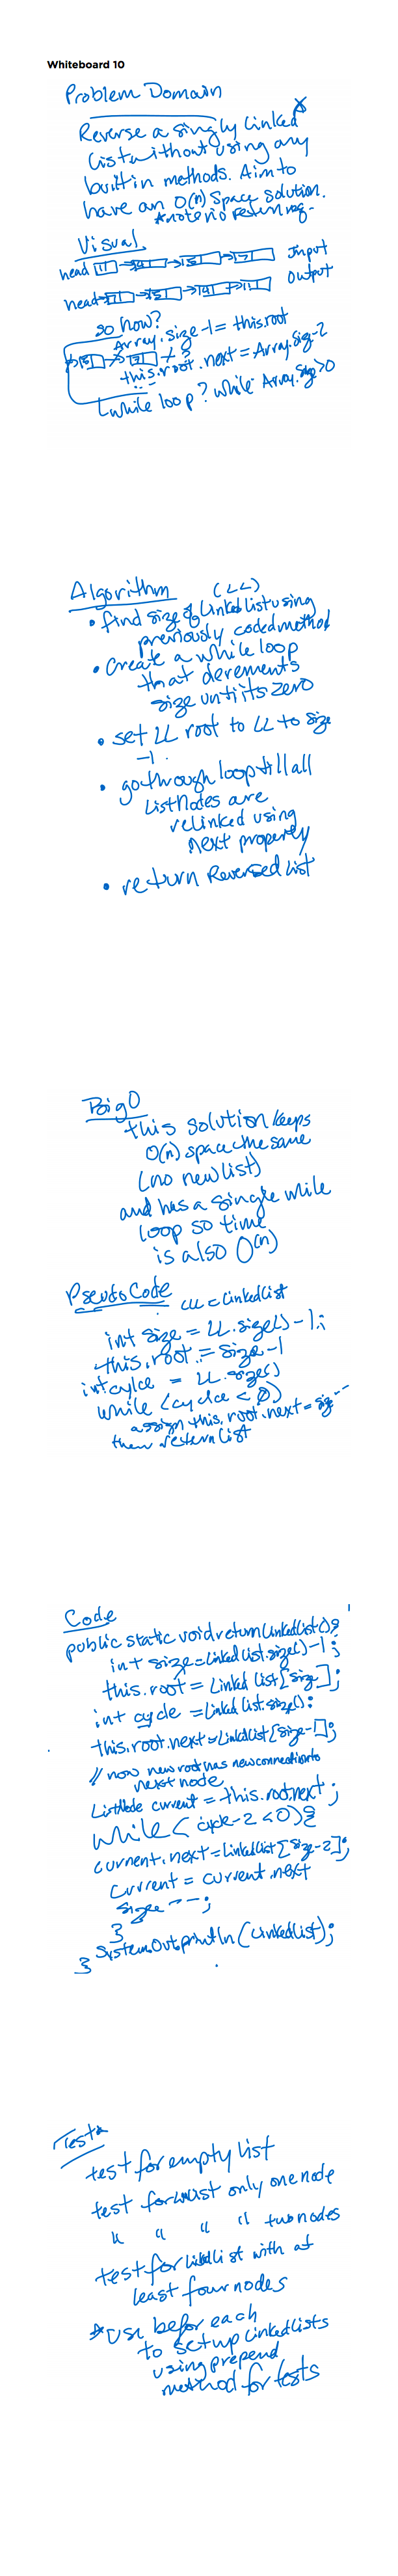 Whiteboard 10
Problem Domain
Reverse a singly Linked
List without using any
built in methods. Aim to
have an O(n) Space solution.
*note no return req.
Visual
head [1] → [4] → [5] → [7] Input
head → [7] → [5] → [4] → [1] Output
so how?
Array.size-1 = this.root
this.root.next = Array.size-2
while loop? while Array.size>0
Algorithm (LL)
• find size of Linked List using
previously coded method
• Create a while loop
that derements
size until its zero
• set LL root to LL to size
-1.
• go through loop till all
ListNotes are
relinked using
next property
• return Reversed List
Big O
this solution keeps
O(n) space the same
(no new list)
and has a single while
loop so time
is also O(n)
Pseudo Code LL = Linked List
int size = LL.size()-1;
this.root = size-1
int cylce = LL.size()
while (cyclce < 0)
assign this.root.next = size--
then return list
Code
public static void return LinkedList(){
int size = Linked List.size()-1;
this.root = Linked List[size];
int cycle = Linked List.size();
this.root.next = LinkedList[size-1];
// now new root has new connection to
next node
ListNode current = this.root.next;
while (cycle-2 <0){
current.next = LinkedList[size-2];
current = current.next
size--;
}
System.Out.println(LinkedList);
}
Tests
test for empty list
test for list only one node
" " " " two nodes
test for linked list with at
least four nodes
*use befor each
to setup LinkedLists
using prepend
method for tests